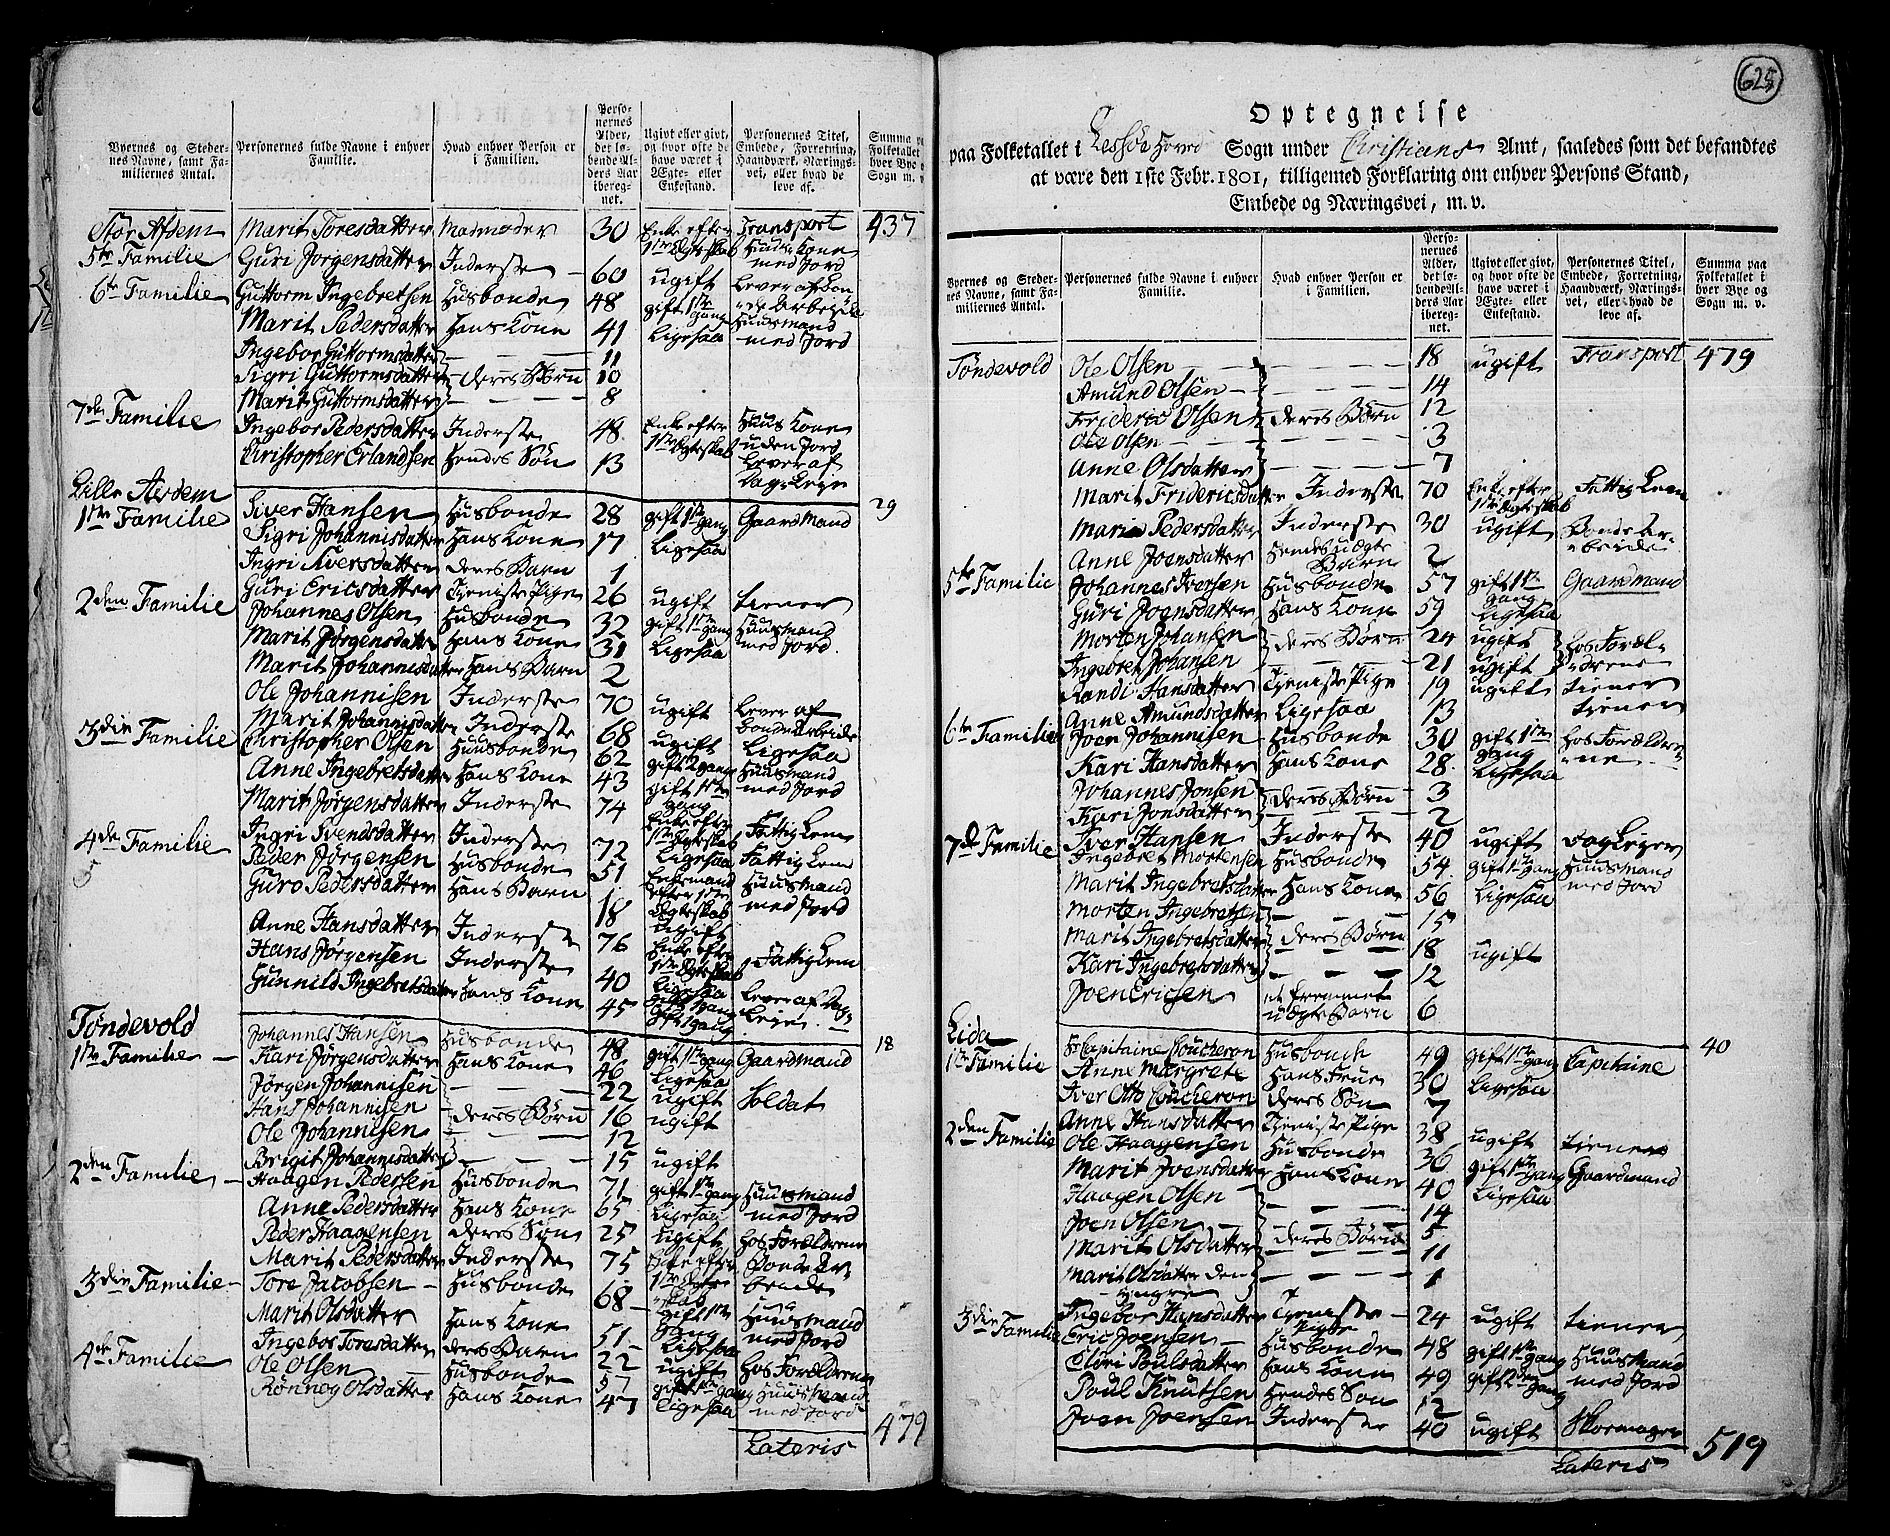 Byernes og Steder-
nes Navne, samt Fa-
miliernes Antal.
Personernes fulde Navne i enhver
Familie.
Hvad enhver Person er
i Familien.
Perso-
nernes
Alder,
det lø-
bende Al-
ders Aar
ibereg-
net.
Ugivt eller givt,
og hvor ofte de
have været i
Ægte- eller
Enkestand.
Personernes Titel,
Embede, Forretning,
Haandværk, Nærings-
vei, eller hvad de
leve af.
Summa
Folketallet
hver Bye
Sogn m.
Stor Asdem Marit Toresdatter Madmoder 30 Enke efter 1ste Ægteskab Transport 437
5te Familie Guri Jørgensdatter Inderste 60 ugift Huus Kone med Jord
6te Familie Guttorm Ingebretsen Husbonde 48 gift 1ste gang
Marit Pedersdatter Hans Kone 41 Ligesaa Huusmand med Jord
Ingebor Guttormsdatter 11
Sigri Guttormsdatter deres Børn 10
Marit Guttormsdatter 8
7de Familie Ingebor Pedersdatter Inderste 48 Enke efter 1ste Ægteskab Huus Kone uden Jord
Christopher Erlandsen Hendes Søn 13 Lever af Dag Leye
Lille Asdem 29
1ste Familie Siver Hansen Husbonde 28 gift 1ste gang Gaardmand
Sigri Johannisdatter Hans Kone 17 Ligesaa
Ingri Siversdatter deres Barn 1
Guri Ericsdatter Tjeniste Pige 26 ugift tiener
2den Familie Johannes Olsen Husbonde 32 gift 1ste gang Huusmand med Jord
Marit Jørgensdatter Hans Kone 31 Ligesaa
Marit Johannisdatter Hans Barn 2
Ole Johannisen Inderste 70 ugift Lever af bonde Arbeide
Marit Johannisdatter Inderste 68 ugift Ligesaa
3die Familie Christopher Olsen Huusbonde 62 gift 2 gange Huusmand med Jord
Anne Ingebretsdatter Hans Kone 43 gift 1ste gang
Marit Jørgensdatter Inderste 74 Enke efter 1ste Ægteskab Fattig Lem
Ingri Svendsdatter Inderste 72 Ligesaa Fattig Lem
4de Familie Peder Jørgensen Husbonde 51 Enkemand efter 1ste Ægteskab Huusmand med Jord
Guro Pedersdatter Hans Barn 18 ugift
Anne Hansdatter Inderste 76 Enke efter 1ste Ægteskab Fattig Lem
Hans Jørgensen Inderste 40
Gunnild Ingebretsdatter Hans Kone 45 gift 1 gang
Tøndevold 18
1ste Familie Johannes Hansen Husbonde 48 gift 1ste gang Gaardmand
Kari Jørgensdatter Hans Kone 46 Ligesaa
Jørgen Johannisen 22 ugift Soldat
Hans Johannisen deres Børn 16 ugift
Ole Johannisen 12
Brigit Johannisdatter 15 ugift
2den Familie Haagen Pedersen Husbonde 71 gift 1ste gang Huusmand med Jord
Anne Pedersdatter Hans Kone 65 Ligesaa
Peder Haagensen deres Søn 25 ugift hos Forældrene
Marit Pedersdatter Inderste 75 Enke efter 1ste Ægteskab
3die Familie Tore Jacobsen Husbonde 68 gift 1ste gang Huusmand med Jord
Marit Olsdatter Hans Kone 51 Ligesaa
Ingebor Toresdatter deres Barn 22 ugift hos Forældrene
4de Familie Ole Olsen Husbonde 57 gift 1ste gang Huusmand med Jord
Rønnog Olsdatter Hans Kone 47 Ligesaa
Lateris 479
625
Optegnelse
paa Folketallet i Lessøe Hoved Sogn under Christians Amt, saaledes som det befandtes
at være den 1ste Febr. 1801, tilligemed Forklaring om enhver Persons Stand,
Embede og Næringsvei, m. v.
Byernes og Steder-
nes Navne, samt Fa-
miliernes Antal.
Personernes fulde Navne i enhver
Familie.
Hvad enhver Person er
i Familien.
Perso-
nernes
Alder,
det lø-
bende Al-
ders Aar
ibereg-
net.
Ugivt eller givt,
og hvor ofte de
have været i
Ægte- eller
Enkestand.
Personernes Titel,
Embede, Forretning,
Haandværk, Nærings-
vei, eller hvad de
leve af.
Summa paa
Folketallet i
hver Bye og
Sogn m. v.
Tøndevold Ole Olsen 18 ugift Transport 479
Amund Olsen 14
Friderid Olsen deres Børn 12
Ole Olsen 3
Anne Olsdatter 7
Marit Fridericsdatter Inderste 70 Enke efter 1ste Ægteskab Fattig Lem
Maria Pedersdatter Inderste 30 ugift Bonde Arbeide
Anne Joensdatter Hendes uægte Barn 2
5te Familie Johannes Iversen Husbonde 57 gift 1ste gang Gaardmand
Guri Joensdatter Hans Kone 59 Ligesaa
Morten Johansen deres Børn 24 ugift hos Forældrene
Ingebret Johansen 21 ugift
Randi Hansdatter Tjeniste Pige 19 ugift tiener
Anne Amundsdatter Ligesaa 13 tiener
6te Familie Joen Johannisen Husbonde 30 gift 1ste gang hos Forældrene
Kari Hansdatter Hans Kone 28 Ligesaa
Johannes Jonsen deres Børn 3
Kari Jonsdatter 2
Iver Hansen Inderste 40 ugift Dagleyer
7de Familie Ingebret Mortensen Husbonde 54 gift 1ste gang Huusmand med Jord
Marit Ingebretsdatter Hans Kone 56 Ligesaa
Morten Ingebretsen 15
Marit Ingebretsdatter deres Børn 18 ugift
Kari Ingebretsdatter 12
Joen Ericsen et fremmet uægte Barn 6
Lida 40
1ste Familie Hr Capitaine Coucheron Husbonde 49 gift 1ste gang Capitaine
Anne Margrete Hans Frue 30 Ligesaa
Iver Otto Coucheron deres Søn 7
Anne Hansdatter Tjeniste Pige 38 ugift tiener
2den Familie Ole Haagensen Husbonde 36 gift 1ste gang Gaardmand
Marit Joensdatter Hans Kone 40 Ligesaa
Haagen Olsen 14
Joen Olsen deres Børn 5
Marit Olsdatter 11
Marit Olsdatter den yngre 1
Ingebor Hansdatter Tjeniste Pige 24 ugift tiener
3die Familie Eric Joensen Husbonde 48 gift 1ste gang Huusmand med Jord
Poulsdatter Hans Kone 49 gift 2den gang
Poul Knutsen Hendes Søn 12
Joen Joensen Inderste 40 ugift Skomager
Lateris 519